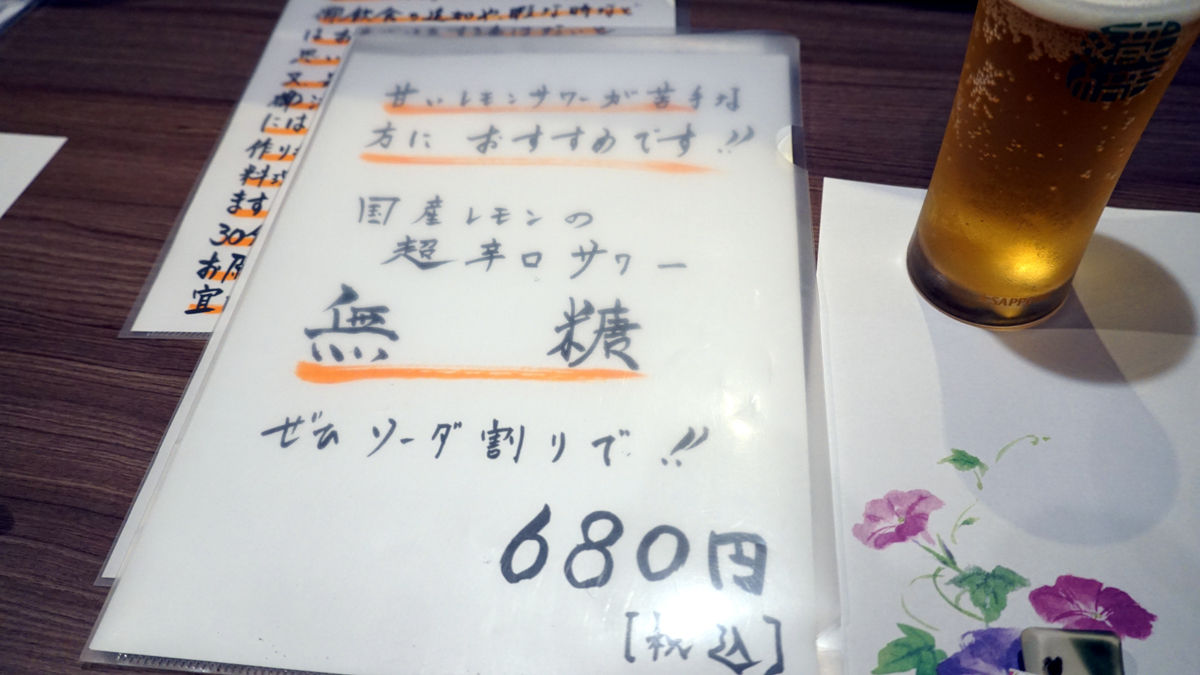 甘いレモンサワーが苦手な
方に おすすめです!!
国産レモンの
超辛口サワー
無 糖
ぜひ ソーダ割りで!!
680円
[税込]
飲食の追加や、暇な時など
は
思い
又
には
作り
料
ます
30
お
宜
SAPP